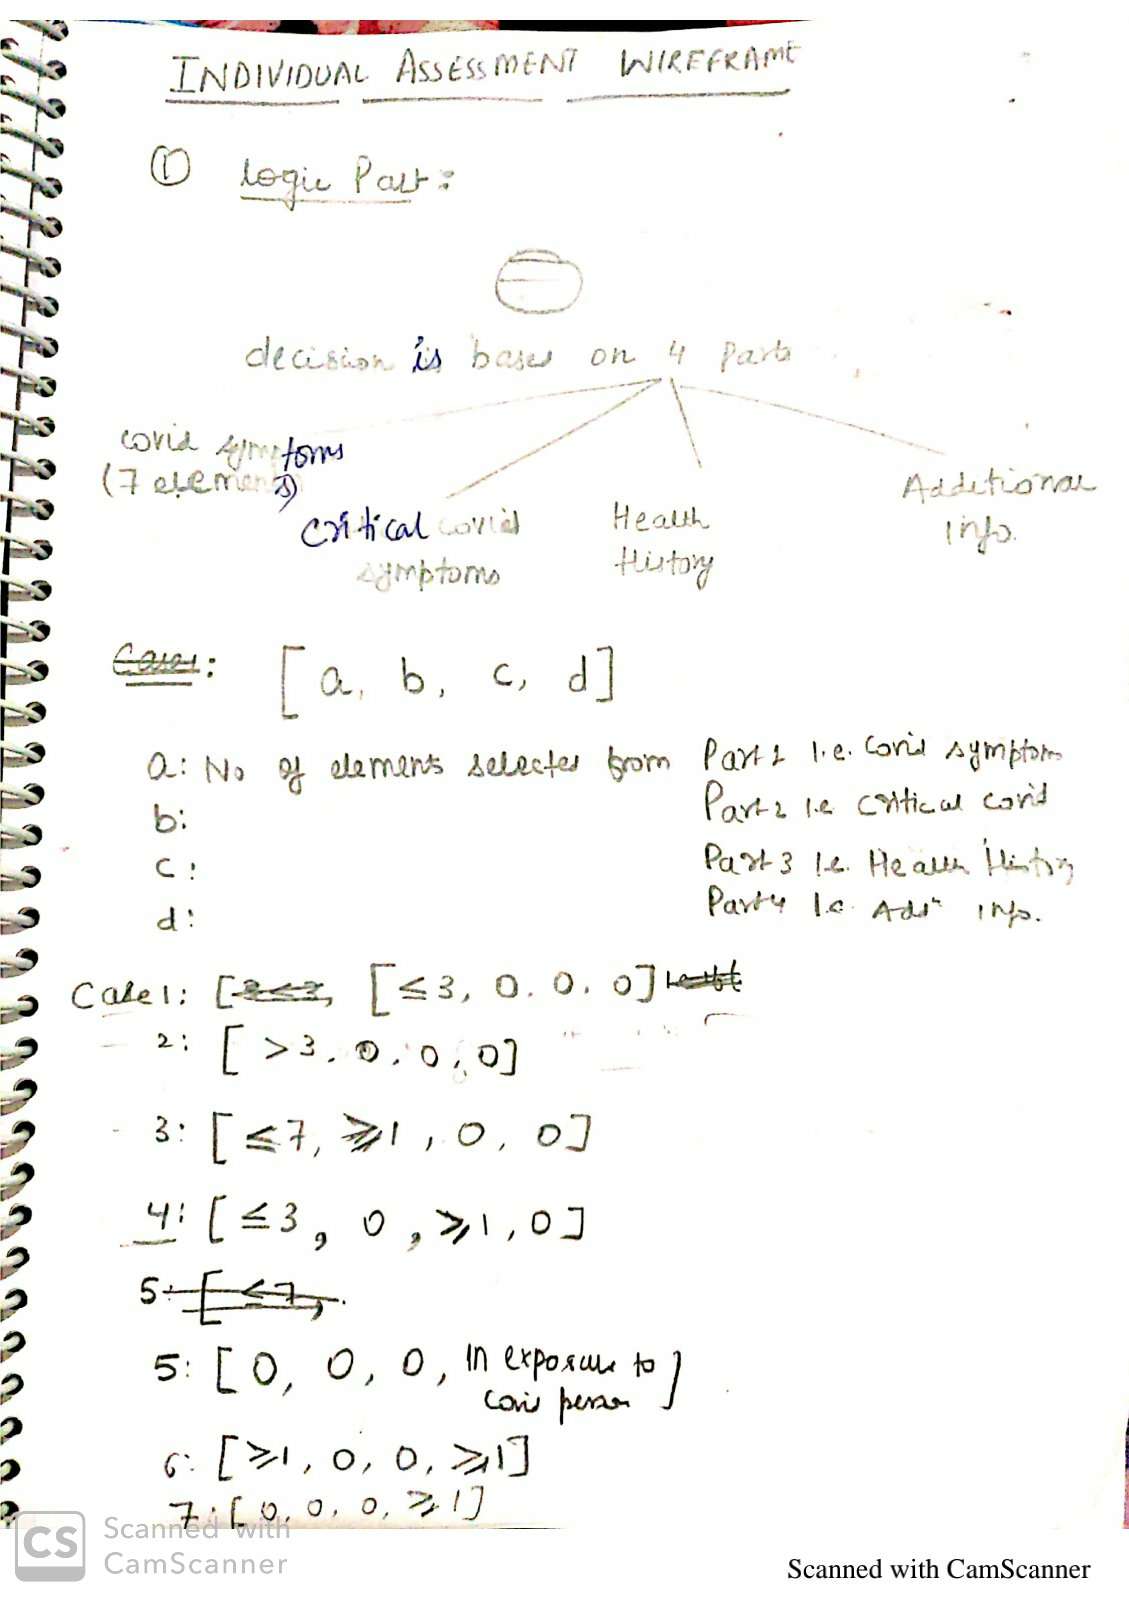 INDIVIDUAL ASSESSMENT WIREFRAME
① Logic Part:
decision is bases on 4 Parts
covid symptoms
(7 elements)
critical covid
symptoms
Health
History
Additional
Info.
Cases: [a, b, c, d]
a: No of elements selected from Part 1 i.e. Covid symptom
b: Part 2 i.e. critical covid
c: Part 3 i.e. Health History
d: Part 4 i.e. Addⁿ info.
Case 1: [ [≤3, 0. 0. 0]
2: [>3, 0, 0, 0]
3: [≤7, ≥1, 0, 0]
4: [≤3, 0, ≥1, 0]
5: [≤7,
5: [0, 0, 0, In exposure to
covid person ]
6: [≥1, 0, 0, ≥1]
7: [0, 0, 0, ≥1]
CS Scanned with
CamScanner
Scanned with CamScanner